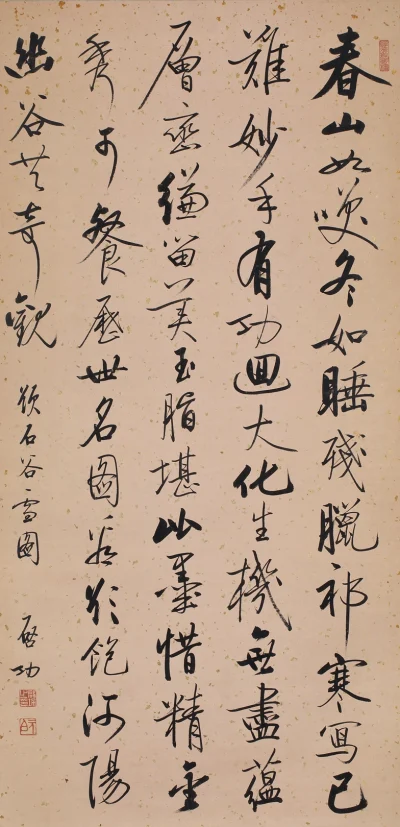 春山如笑冬如睡殘臘祁寒寫已
難妙手有功迴大化生機無盡蘊
層巒縑留美玉脂堪比墨惜精金
秀可餐歷世名圖飽河陽
幽谷共奇觀 題石谷雪圖 啟功